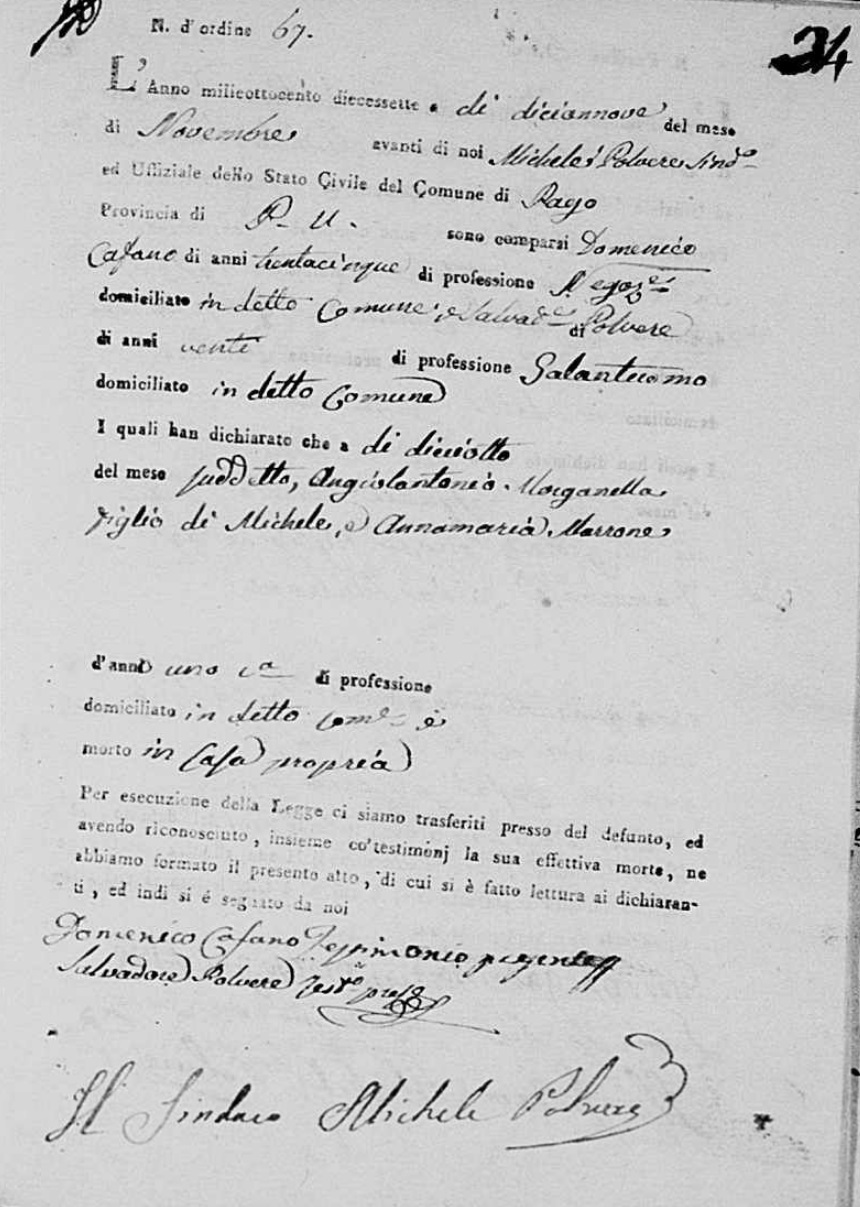 N. d'ordine 67. 34
L'Anno milleottocento diecessette a di diciannove del mese
di Novembre avanti di noi Michele Polvere Sind.o
ed Uffiziale dello Stato Civile del Comune di Pago
Provincia di P. U. sono comparsi Domenico
Cafano di anni trentacinque di professione Negoz.e
domiciliato in detto Comune, e Salvad.e di Polvere
di anni venti di professione Galantuomo
domiciliato in detto Comune
I quali han dichiarato che a di diciotto
del mese suddetto, Angiolantonio Morganella
figlio di Michele, e Annamaria Marrone
d'anni uno c.a di professione
domiciliato in detto Com.e è
morto in Casa propria
Per esecuzione della Legge ci siamo trasferiti presso del defunto, ed
avendo riconosciuto, insieme co'testimonj la sua effettiva morte, ne
abbiamo formato il presente atto, di cui si è fatto lettura ai dichiaran-
ti, ed indi si é segnato da noi
Domenico Cafano Tessimonio presente
Salvadore Polvere Test.o pres.e
Il Sindaco Michele Polvere